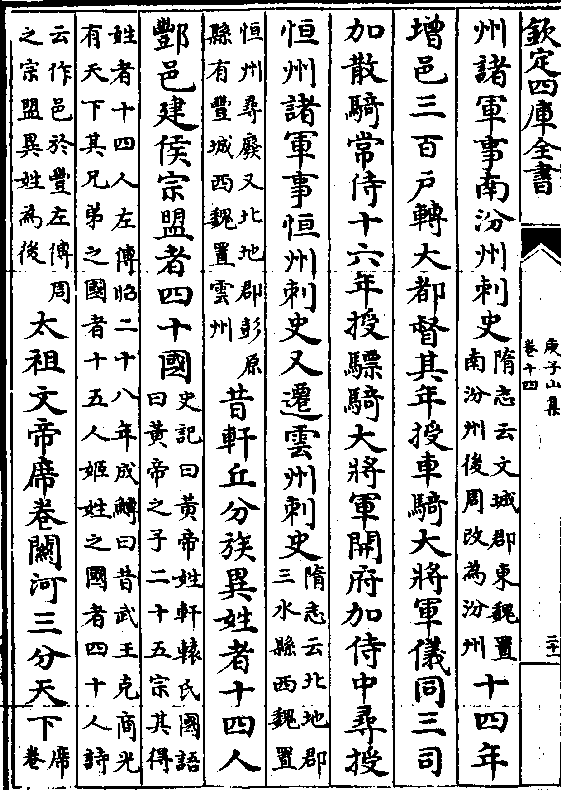 欽定四庫全書
庾子山集
卷十四
二十一
州諸軍事南汾州刺史隋志云文城郡東魏置南汾州後周改為汾州十四年
增邑三百戶轉大都督其年授車騎大將軍儀同三司
加散騎常侍十六年授驃騎大將軍開府加侍中尋授
恒州諸軍事恒州刺史又遷雲州刺史隋志云北地郡三水縣西魏置
恒州尋廢又北地郡彭原縣有豐城西魏置雲州昔軒丘分族異姓者十四人
酆邑建侯宗盟者四十國史記曰黃帝姓軒轅氏國語曰黃帝之子二十五宗其得
姓者十四人左傳昭二十八年成鱄曰昔武王克商光有天下其兄弟之國者十五人姬姓之國者四十人詩
云作邑於豐左傳周之宗盟異姓為後太祖文帝席卷關河三分天下席卷